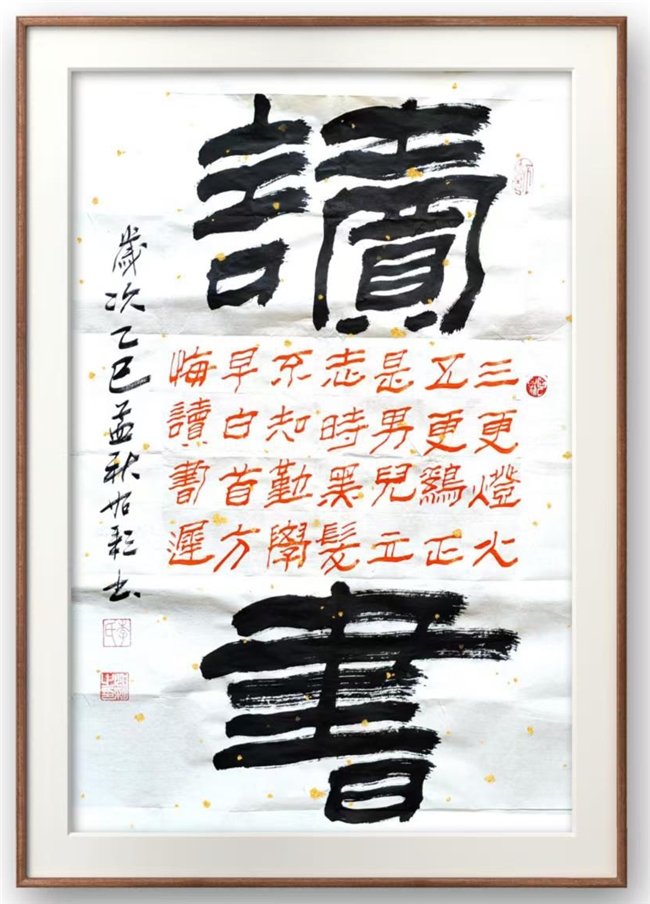 讀
三更燈火
五更鷄正
是男兒立
志時黑髮
不知勤學
早白首方
悔讀書遲
書
歲次乙巳孟秋书
李氏